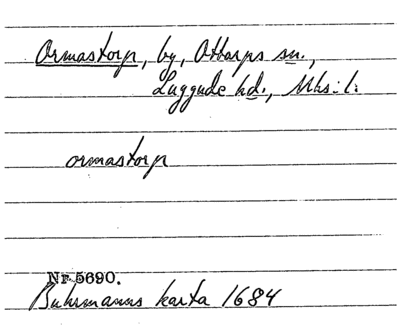 Ormastorp, by, Ottarps sn.,
Luggude hd., Mhs. l.
ormastorp
Nr. 5690.
Buhrmanns karta 1684